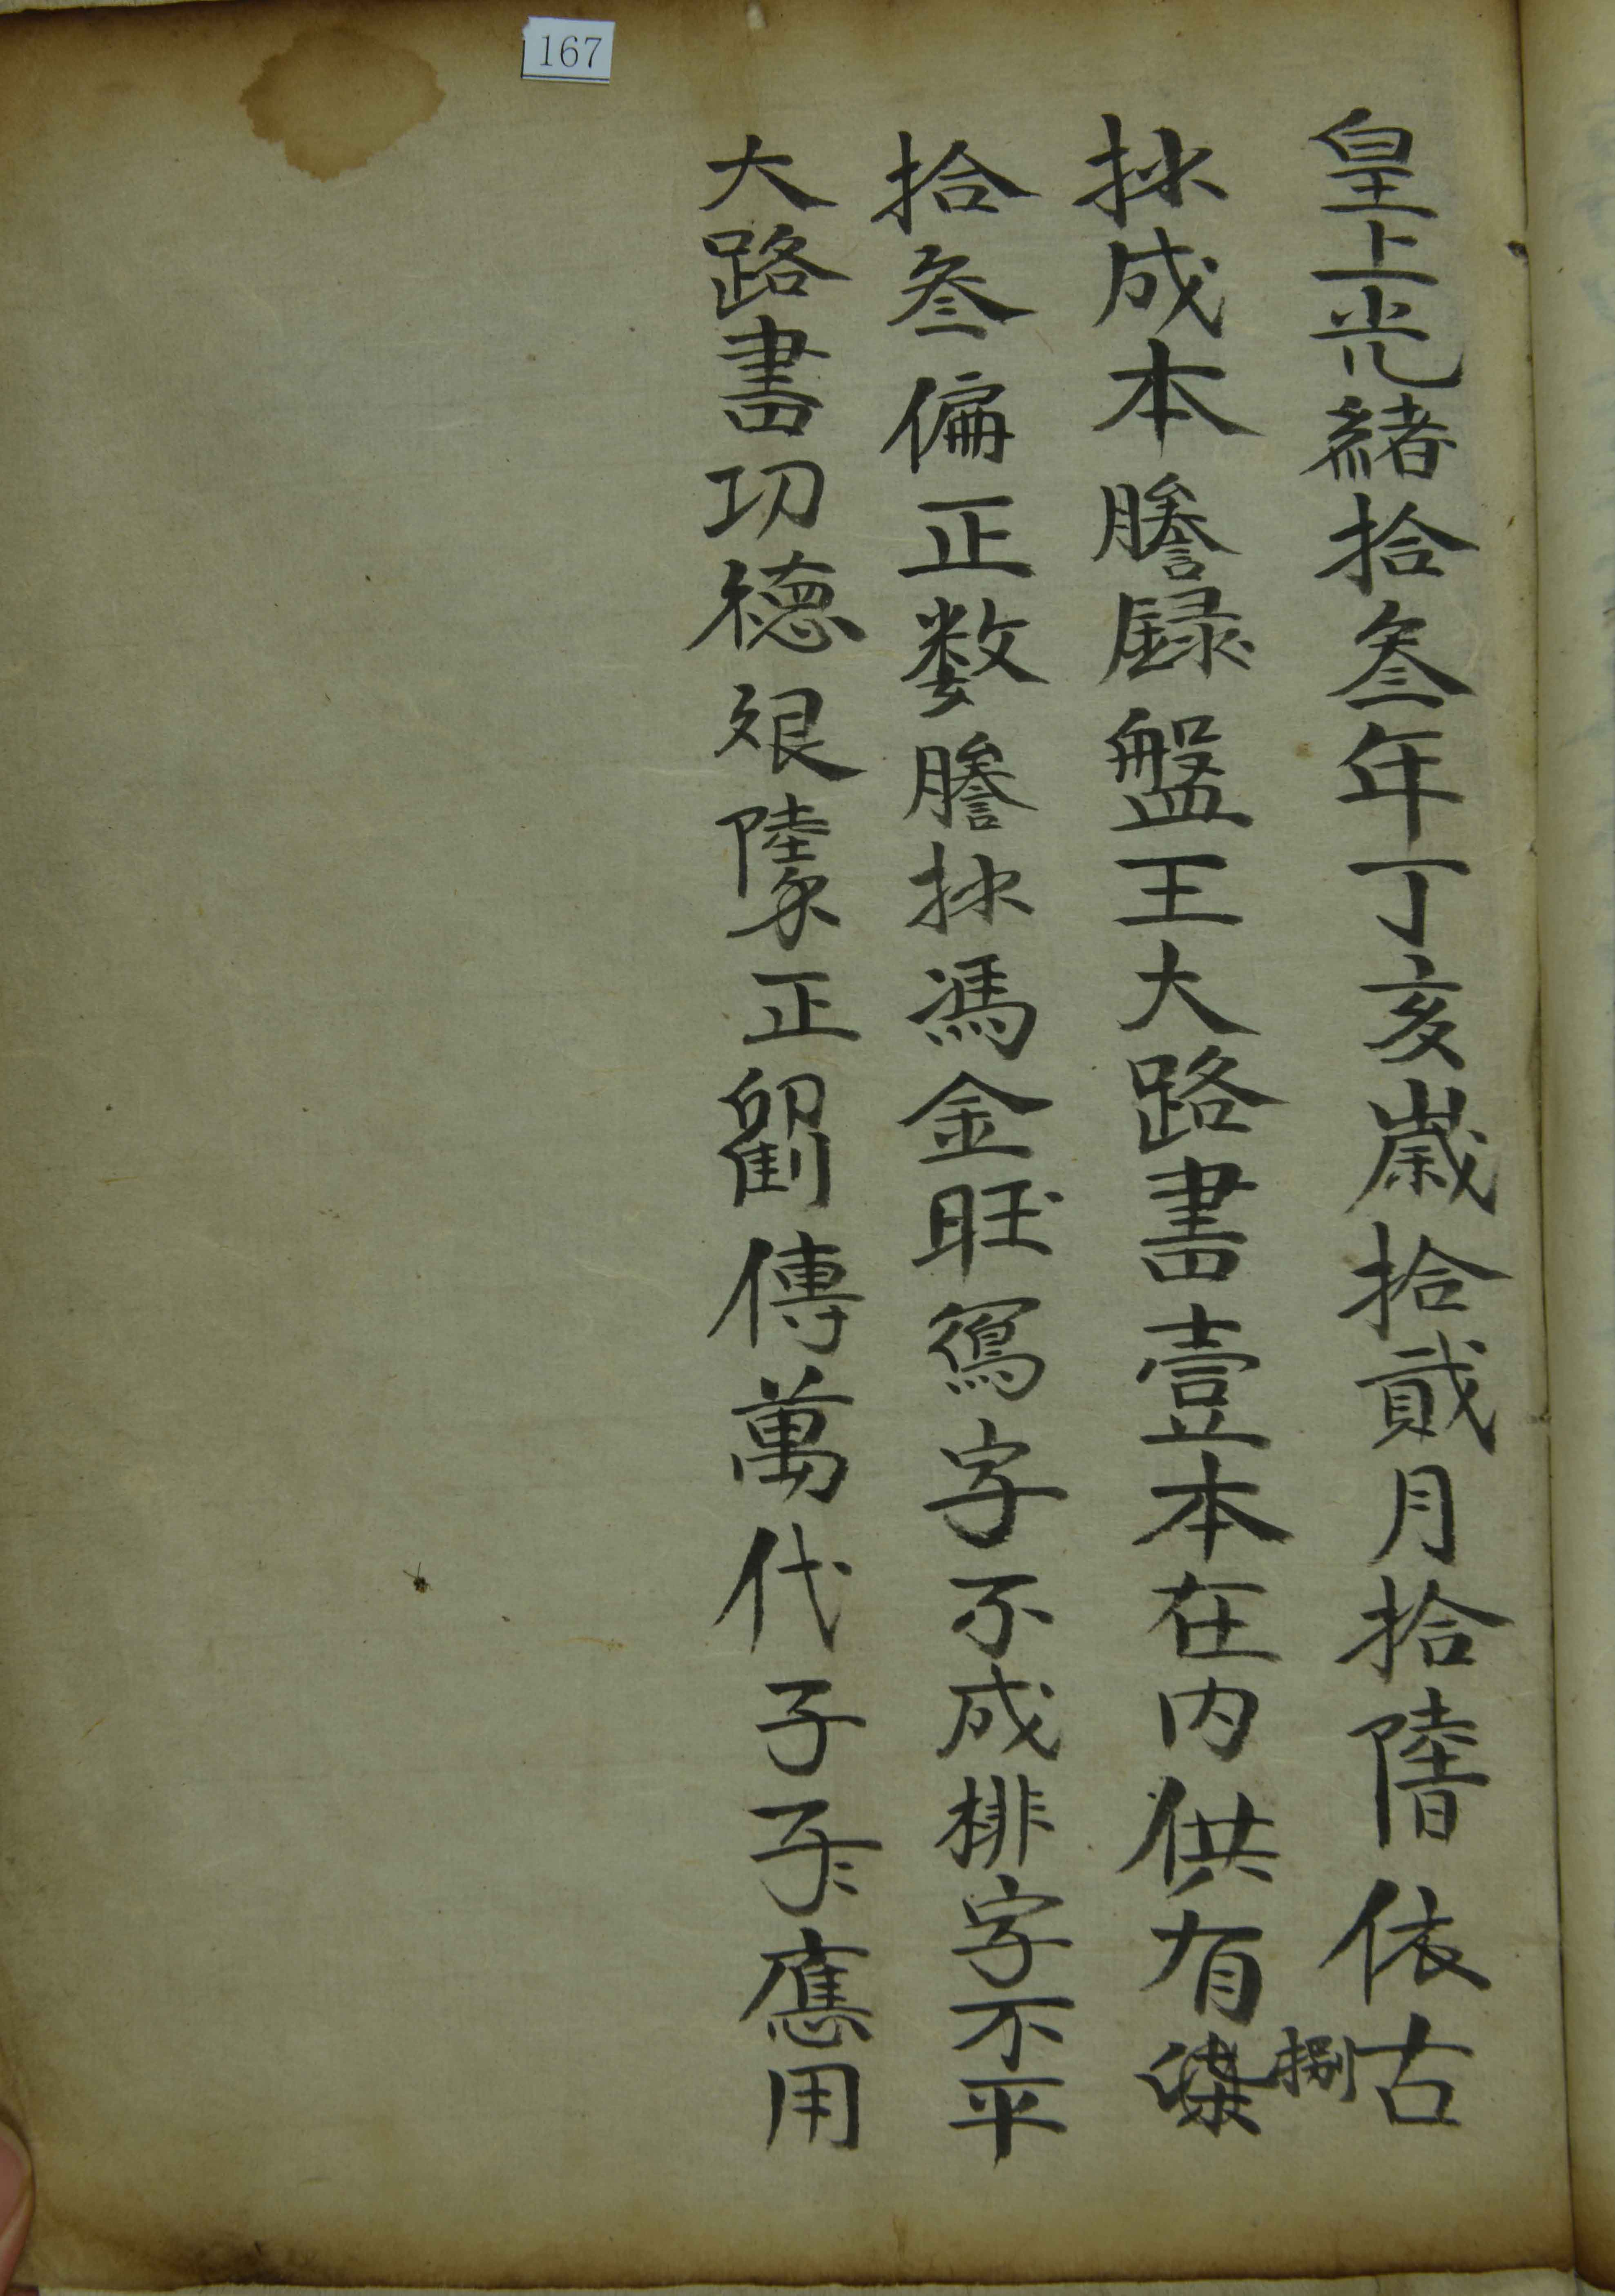 皇上光緒拾叁年丁亥歲拾貳月拾陸日依古
抄成本謄録盤王大路書壹本在内供有捌
拾叁偏正数謄抄馮金旺寫字不成排字不平
大路書功德艰陸正劉傳萬代子子孫應用
167